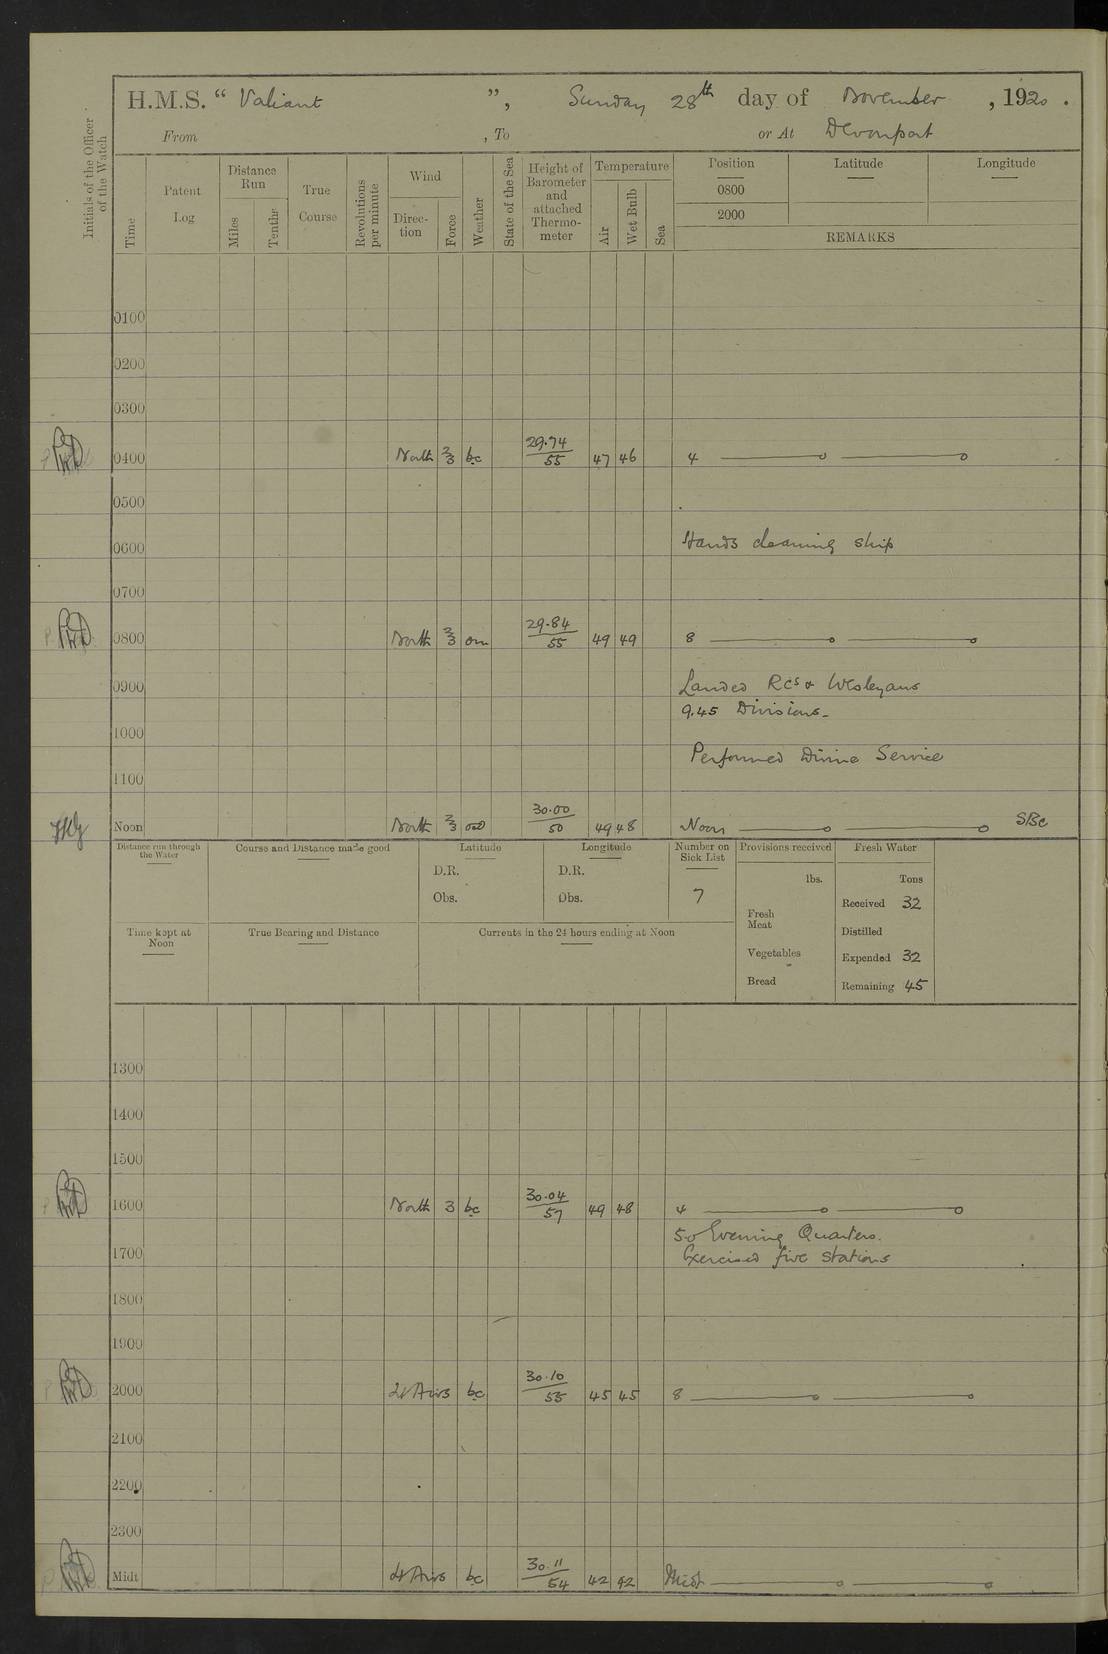 H.M.S. “ Valiant ”, Sunday 28th day of November , 1920 .
From , To or At Devonport
Initials of the Officer of the Watch
Time
Patent Log
Distance Run
Miles
Tenths
True Course
Revolutions per minute
Wind
Direc-tion
Force
Weather
State of the Sea
Height of Barometer and attached Thermo-meter
Temperature
Air
Wet Bulb
Sea
Position
0800
2000
Latitude
Longitude
REMARKS
0100
0200
0300
0400 North 2/3 bc 29.74/55 47 46 4
0500
0600 Hands cleaning ship
0700
0800 North 2/3 om 29.84/55 49 49 8
0900 Landed RCs & Wesleyans
9.45 Divisions.
1000
Performed Divine Service
1100
Noon North 2/3 30.00/50 49 48 Noon SBC
Distance run through the Water
Course and Distance made good
Latitude
D.R.
Obs.
Longitude
D.R.
Obs.
Number on Sick List
7
Provisions received
lbs.
Fresh Meat
Vegetables
Bread
Fresh Water
Tons
Received 32
Distilled
Expended 32
Remaining 45
Time kept at Noon
True Bearing and Distance
Currents in the 24 hours ending at Noon
1300
1400
1500
1600 North 3 bc 30.04/57 49 48 4
5.0 Evening Quarters.
1700 Exercised fire stations
1800
1900
2000 Lt Airs bc 30.10/55 45 45 8
2100
2200
2300
Midt Lt Airs bc 30.11/54 42 42 Midt